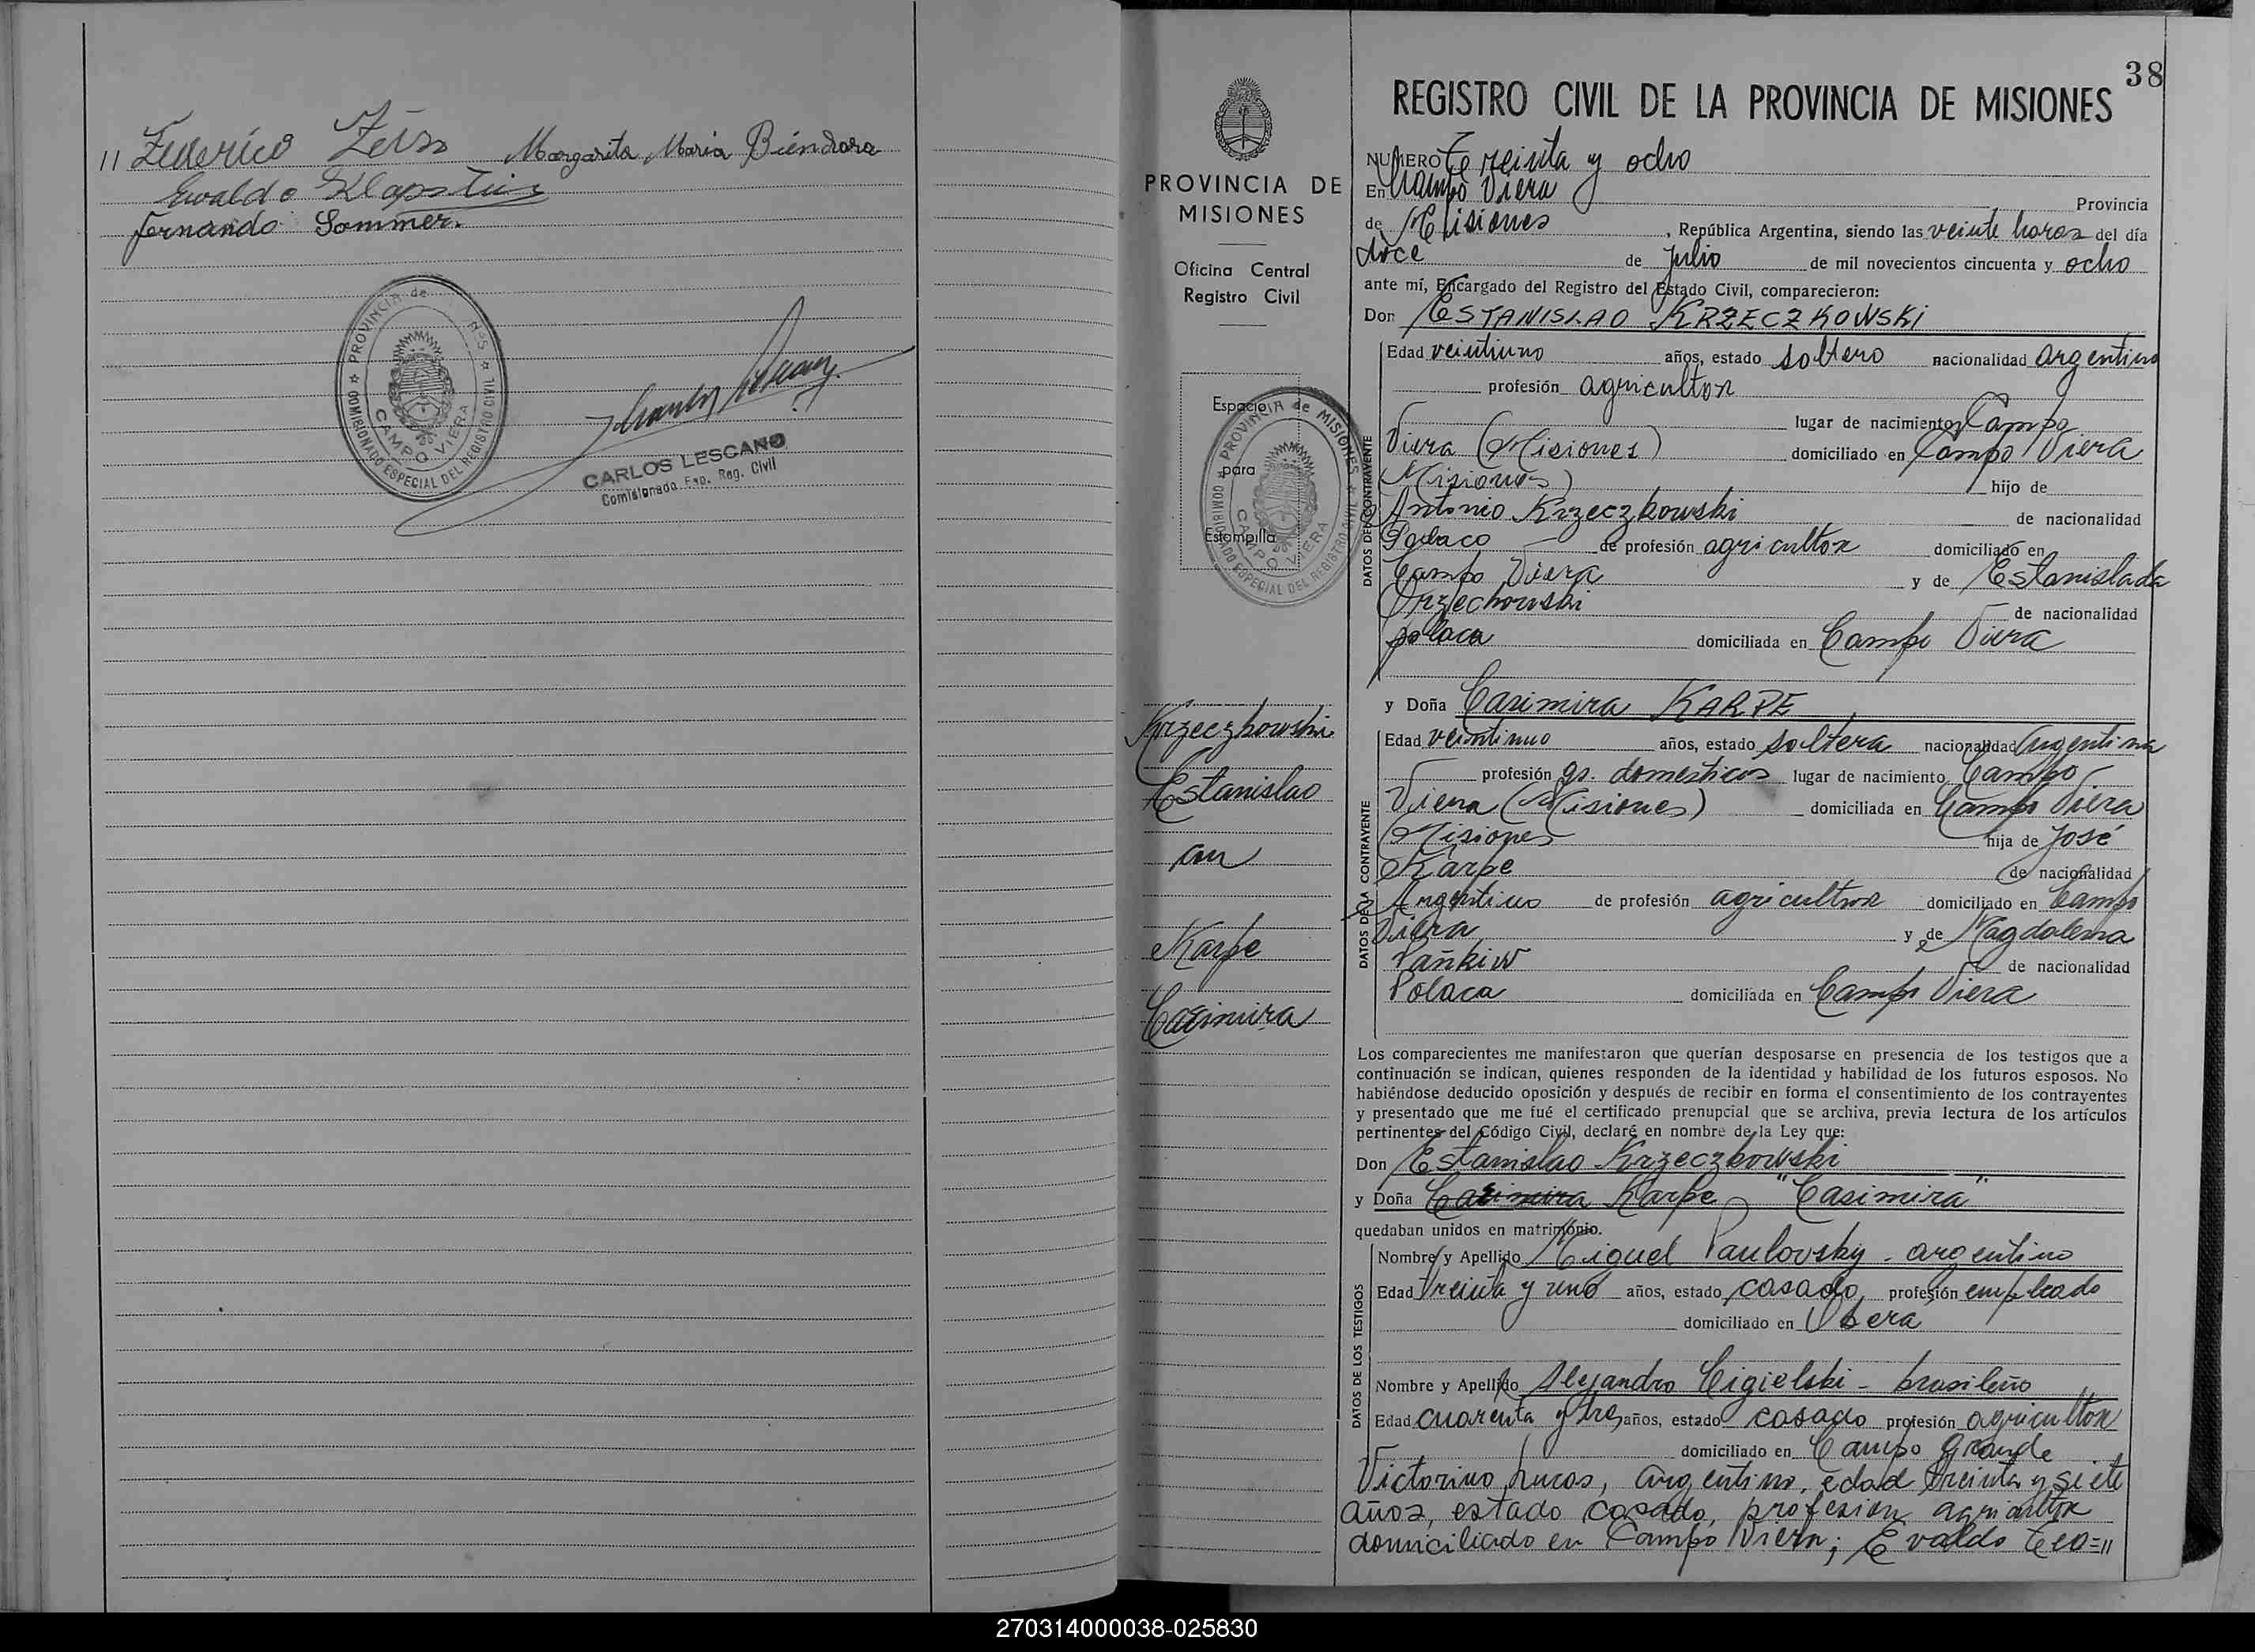 // Federico Zeiss Margarita Maria Biendara
Ewaldo Klapstein
Fernando Sommer.
PROVINCIA de
COMISIONADO ESPECIAL DEL REGISTRO CIVIL
CAMPO VIERA
CARLOS LESCANO
Comisionado Esp. Reg. Civil
38
REGISTRO CIVIL DE LA PROVINCIA DE MISIONES
PROVINCIA DE
MISIONES
Oficina Central
Registro Civil
Espacio
para
Estampilla
PROVINCIA de MISIONES
COMISIONADO ESPECIAL DEL REGISTRO CIVIL
CAMPO VIERA
Krzeczkowski
Estanislao
con
Karpe
Casimira
NUMERO Treinta y ocho
En Campo Viera Provincia
de Misiones, República Argentina, siendo las veinte horas del día
doce de Julio de mil novecientos cincuenta y ocho
ante mí, Encargado del Registro del Estado Civil, comparecieron:
Don ESTANISLAO KRZECZKOWSKI
DATOS DEL CONTRAYENTE
Edad veintiuno años, estado soltero nacionalidad argentino
profesión agricultor
lugar de nacimiento Campo
Viera (Misiones) domiciliado en Campo Viera
(Misiones) hijo de
Antonio Krzeczkowski de nacionalidad
Polaco de profesión agricultor domiciliado en
Campo Viera y de Estanislada
Orzechowski de nacionalidad
polaca domiciliada en Campo Viera
y Doña Casimira KARPE
DATOS DE LA CONTRAYENTE
Edad veintiuno años, estado soltera nacionalidad Argentina
profesión qs. domesticos lugar de nacimiento Campo
Viera (Misiones) domiciliada en Campo Viera
Misiones hija de José
Karpe de nacionalidad
Argentino de profesión agricultor domiciliado en Campo
Viera y de Magdalena
Pañkiw de nacionalidad
Polaca domiciliada en Campo Viera
Los comparecientes me manifestaron que querían desposarse en presencia de los testigos que a
continuación se indican, quienes responden de la identidad y habilidad de los futuros esposos. No
habiéndose deducido oposición y después de recibir en forma el consentimiento de los contrayentes
y presentado que me fué el certificado prenupcial que se archiva, previa lectura de los artículos
pertinentes del Código Civil, declaré en nombre de la Ley que:
Don Estanislao Krzeczkowski
y Doña Casimira Karpe "Casimira"
quedaban unidos en matrimonio.
DATOS DE LOS TESTIGOS
Nombre y Apellido Miguel Paulovsky - argentino
Edad treinta y uno años, estado casado profesión empleado
domiciliado en Obera
Nombre y Apellido Alejandro Cigielski - brasileño
Edad cuarenta y tres años, estado casado profesión agricultor
domiciliado en Campo Grande
Victorino Lucas, argentino, edad treinta y siete
años, estado casado, profesion agricultor
domiciliado en Campo Viera; Evaldo Teo=//
270314000038-025830